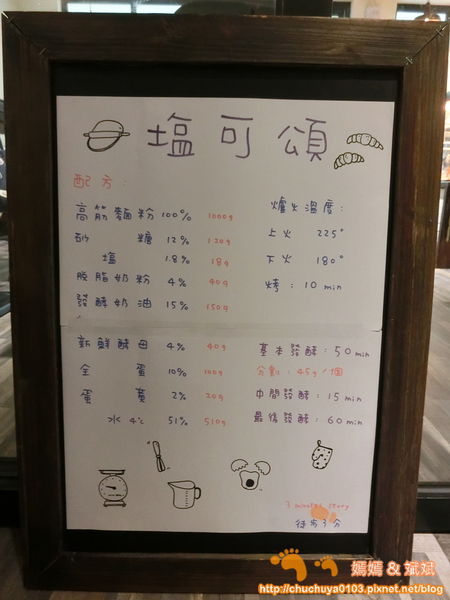 塩可頌
配方:
高筋麵粉 100% 1000g
砂糖 12% 120g
塩 1.8% 18g
脫脂奶粉 4% 40g
發酵奶油 15% 150g
新鮮酵母 4% 40g
全蛋 10% 100g
蛋黃 2% 20g
水 4℃ 51% 510g
爐火溫度:
上火 225°
下火 180°
烤: 10 min
基本發酵: 50 min
分割: 45g/個
中間發酵: 15 min
最後發酵: 60 min
3 minutes story
徒步3分
媽媽 & 斌斌
http://chuchuya0103.pixnet.net/blog